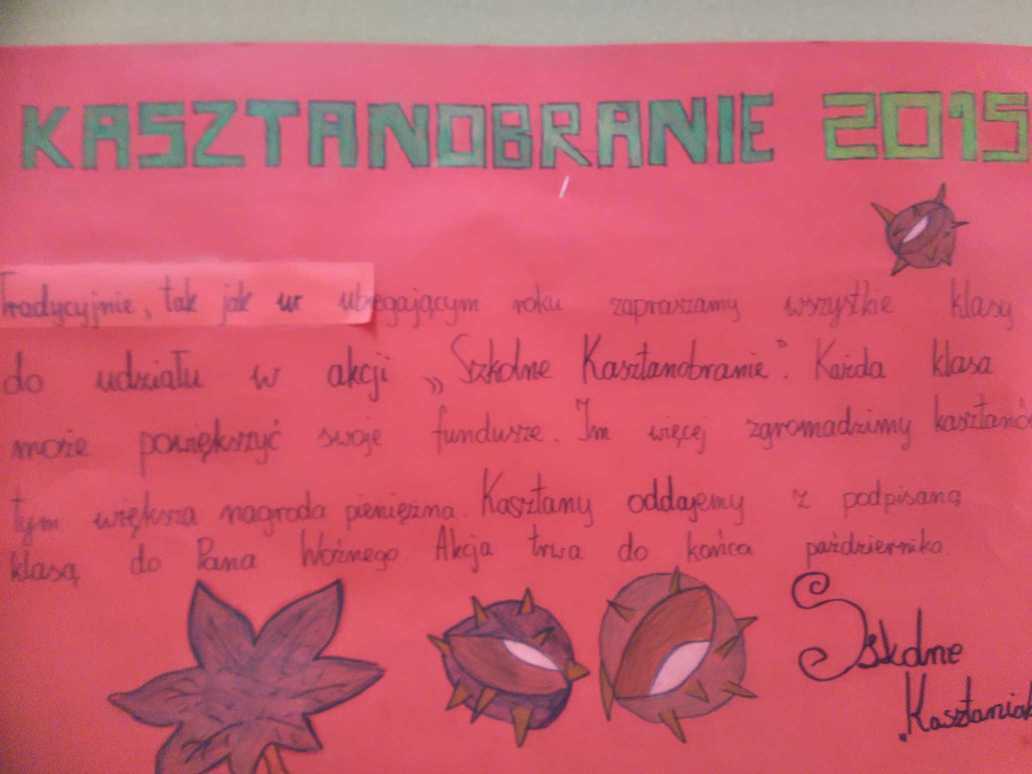 KASZTANOBRANIE 2015
Tradycyjnie, tak jak w ubiegającym roku zapraszamy wszystkie klasy
do udziału w akcji „Szkolne Kasztanobranie". Każda klasa
może powiększyć swoje fundusze. Im więcej zgromadzimy kasztanó
tym większa nagroda pieniężna. Kasztany oddajemy z podpisaną
klasą do Pana Woźnego Akcja trwa do końca października.
Szkolne
Kasztaniak